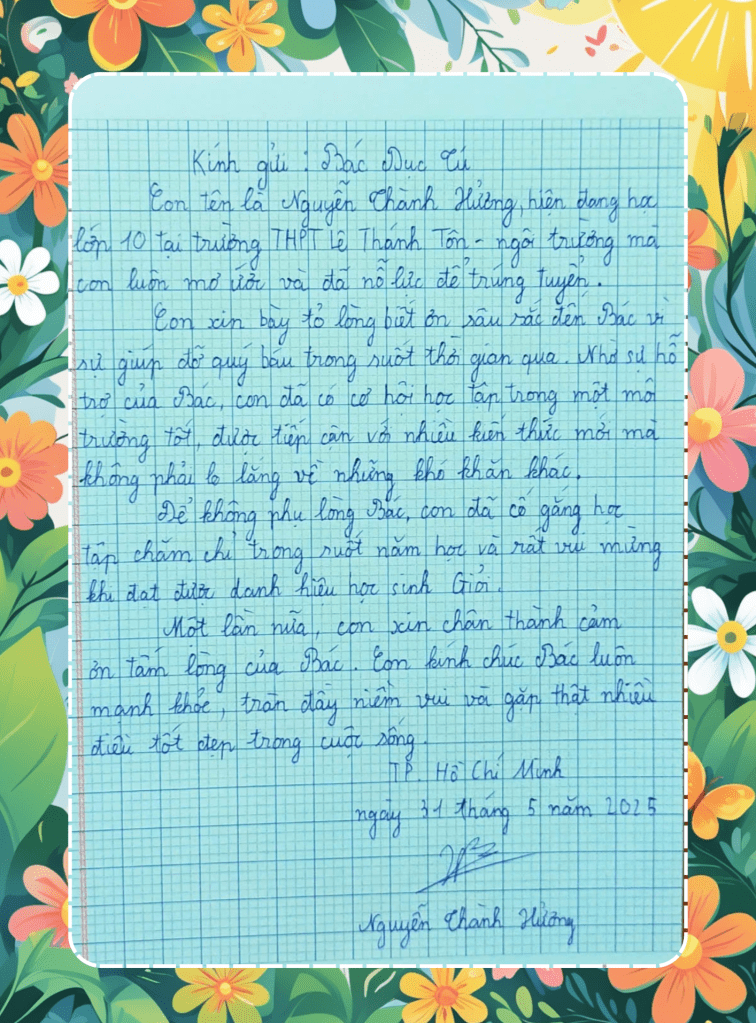 Kính gửi : Bác Dục Tú
Con tên là Nguyễn Thành Hưởng, hiện đang học
lớp 10 tại trường THPT Lê Thánh Tôn - ngôi trường mà
con luôn mơ ước và đã nỗ lực để trúng tuyển.
Con xin bày tỏ lòng biết ơn sâu sắc đến Bác vì
sự giúp đỡ quý báu trong suốt thời gian qua. Nhờ sự hỗ
trợ của Bác, con đã có cơ hội học tập trong một môi
trường tốt, được tiếp cận với nhiều kiến thức mới mà
không phải lo lắng về những khó khăn khác.
Để không phụ lòng Bác, con đã cố gắng học
tập chăm chỉ trong suốt năm học và rất vui mừng
khi đạt được danh hiệu học sinh Giỏi.
Một lần nữa, con xin chân thành cảm
ơn tấm lòng của Bác. Con kính chúc Bác luôn
mạnh khỏe, tràn đầy niềm vui và gặp thật nhiều
điều tốt đẹp trong cuộc sống.
TP. Hồ Chí Minh
ngày 31 tháng 5 năm 2025
Nguyễn Thành Hưởng